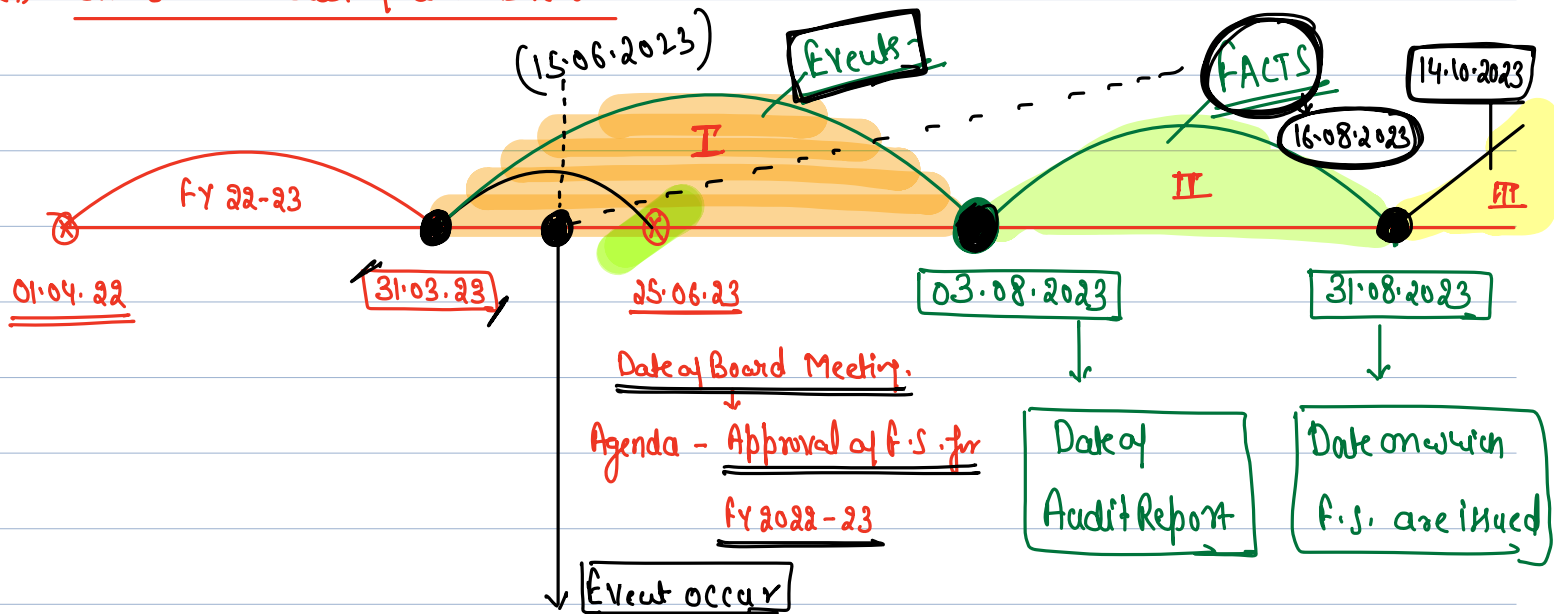 (15.06.2023)
Events
FACTS
14.10.2023
16.08.2023
I
FY 22-23
II
III
01.04.22
31.03.23
25.06.23
03.08.2023
31.08.2023
Date of Board Meeting.
Agenda - Approval of F.S. for
FY 2022-23
Date of
Audit Report
Date on which
F.S. are issued
Event occur